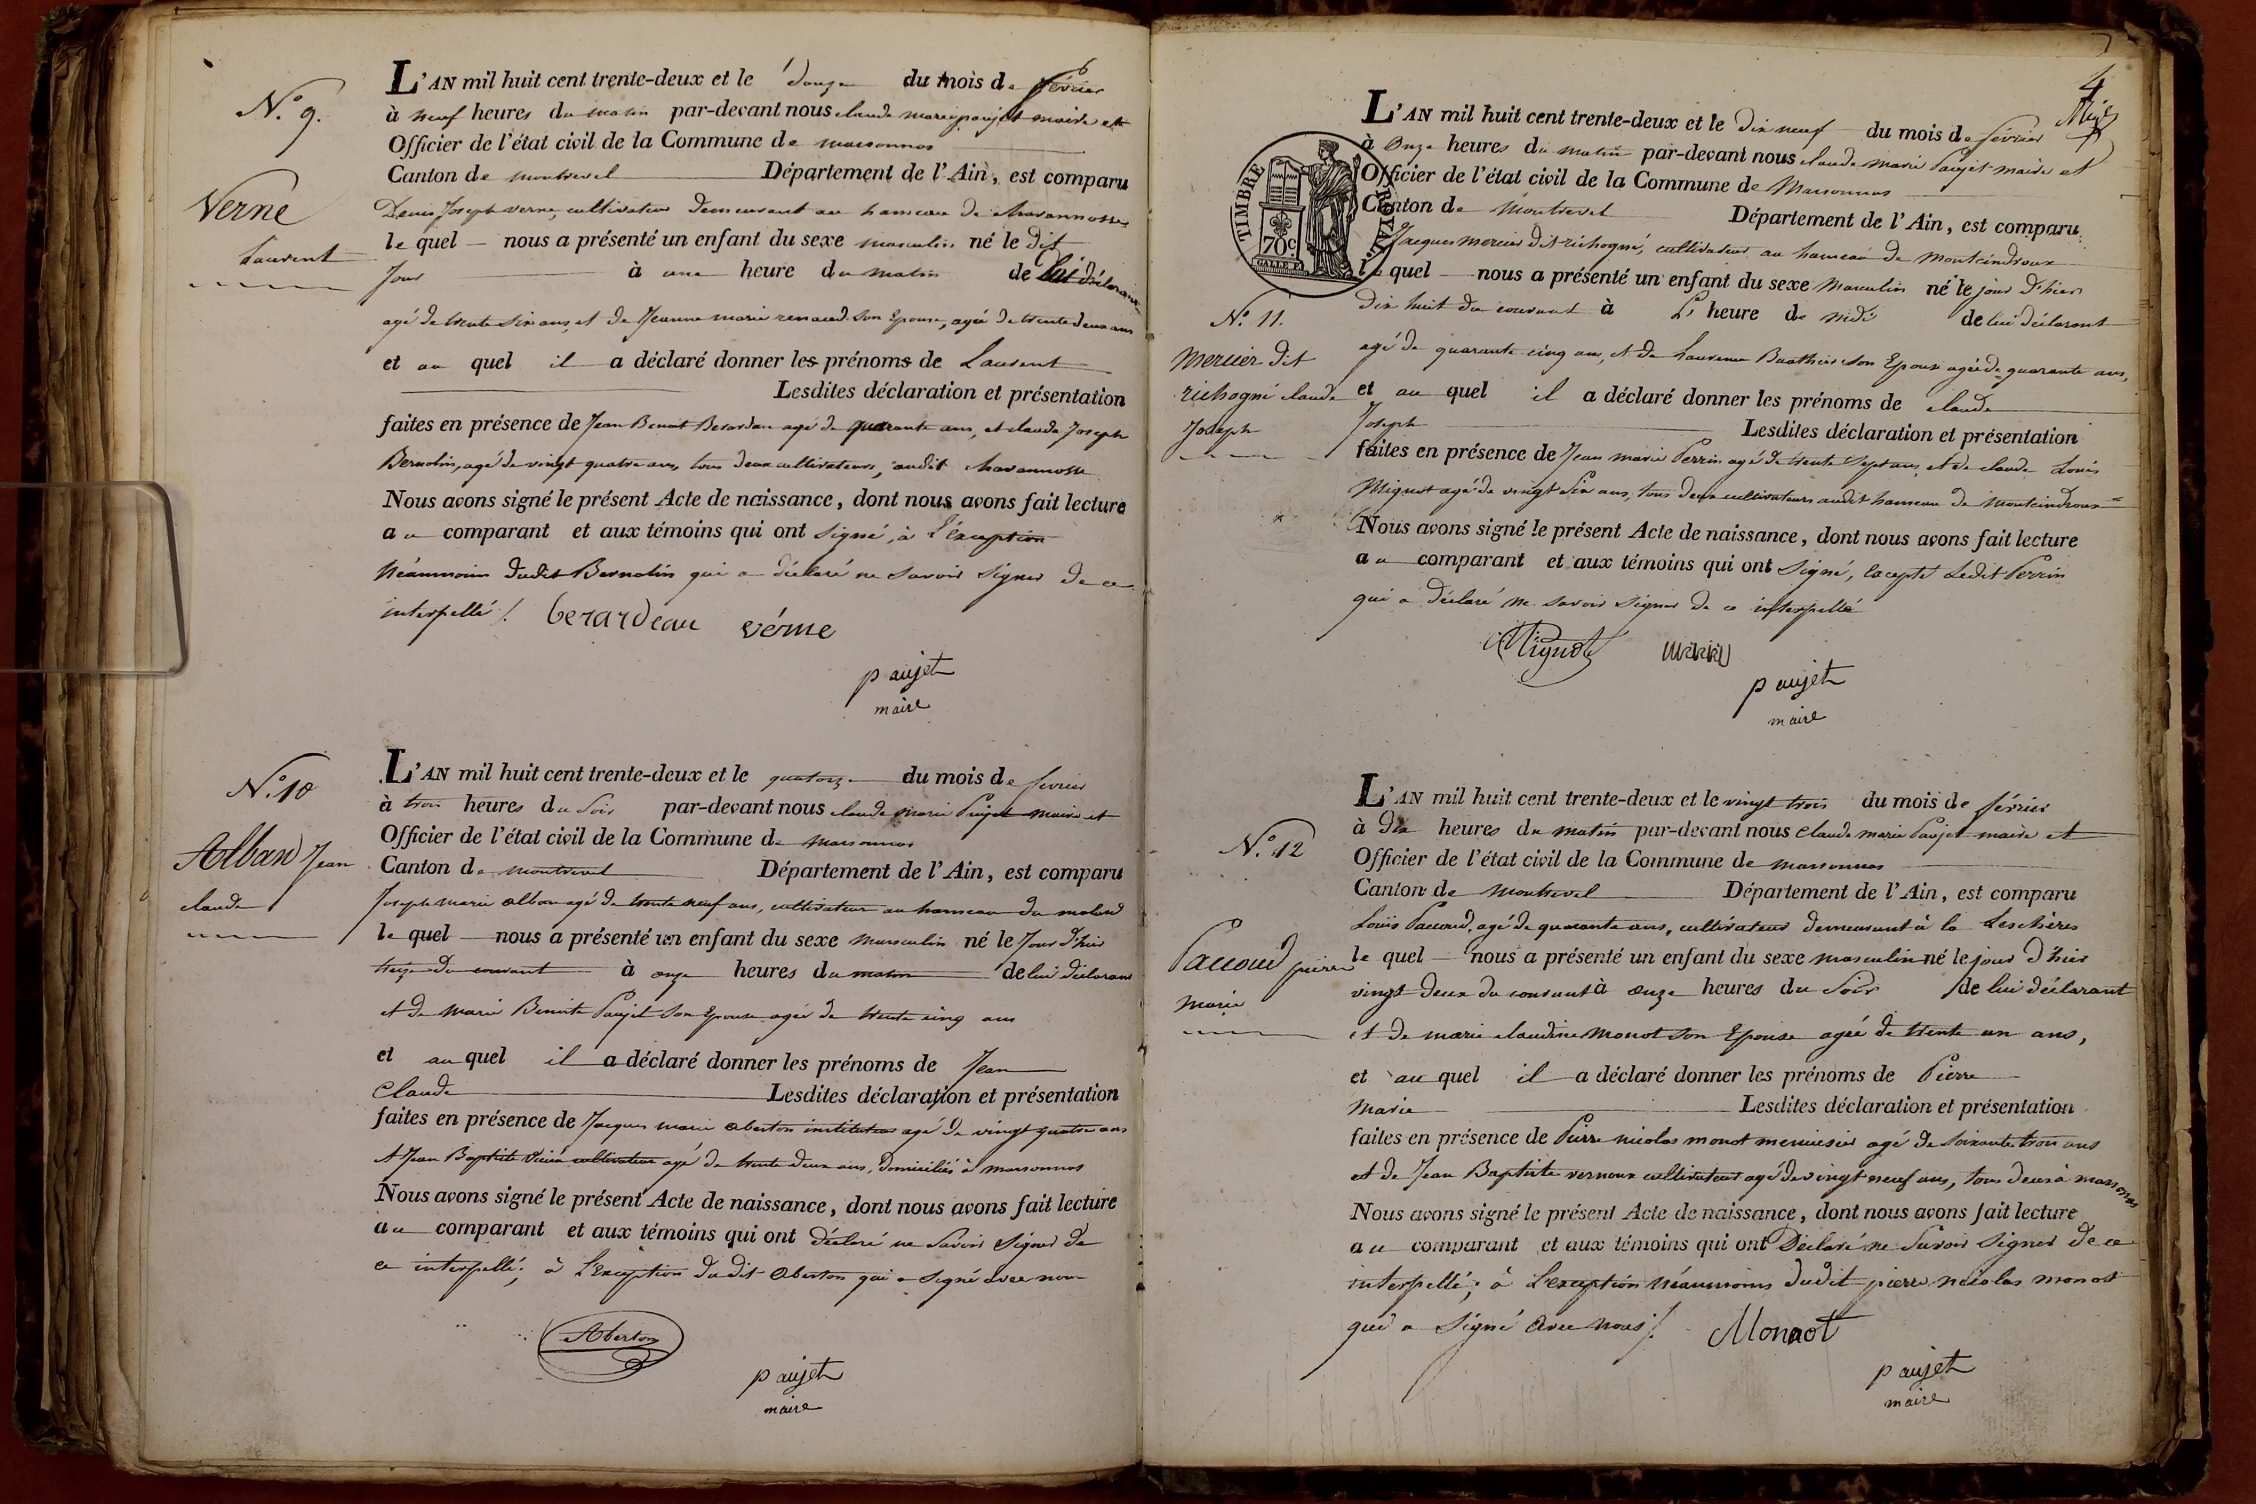 N.° 9.
Verne
Laurent
L'AN mil huit cent trente-deux et le douze du mois de février
à neuf heures du matin par-devant nous claude marie paujet maire et
Officier de l'état civil de la Commune de marsonnas
Canton de montrevel Département de l'Ain, est comparu
Denis Joseph verne, cultivateur demeurant au hameau de chavannosse
le quel nous a présenté un enfant du sexe masculin né le dit
Jour à une heure du matin de lui déclarant
agé de trente six ans, et de Jeanne marie renaud son Epouse, agée de trente deux ans
et au quel il a déclaré donner les prénoms de Laurent
Lesdites déclaration et présentation
faites en présence de Jean Benoit Berardau agé de quarante ans, et claude Joseph
Bernolin, agé de vingt quatre ans, tous deux cultivateurs, audit chavannosse
Nous avons signé le présent Acte de naissance, dont nous avons fait lecture
au comparant et aux témoins qui ont signé, à L'exception
néanmoins dudit Bernolin qui a déclaré ne savoir signer de ce
interpellé /. berardeau verne
paujet
maire
N.° 10
Alban Jean
claude
L'AN mil huit cent trente-deux et le quatorze du mois de fevrier
à trois heures du soir par-devant nous claude marie Paujet maire et
Officier de l'état civil de la Commune de marsonnas
Canton de montrevel Département de l'Ain, est comparu
Joseph marie alban agé de trente neuf ans, cultivateur au hameau du molard
le quel nous a présenté un enfant du sexe masculin né le Jour d'hier
treize du courant à onze heures du matin de lui déclarant
et de marie Benoite Paujet son Epouse agée de trente cinq ans
et au quel il a déclaré donner les prénoms de Jean
Claude Lesdites déclaration et présentation
faites en présence de Jacques marie aberton instituteur agé de vingt quatre ans
et Jean Baptiste cultivateur agé de trente deux ans, domiciliés à marsonnas
Nous avons signé le présent Acte de naissance, dont nous avons fait lecture
au comparant et aux témoins qui ont déclaré ne savoir signer de
ce interpellé; à L'exception dudit aberton qui a signé avec nous
Aberton
paujet
maire
4
TIMBRE ROYAL
70c
N.° 11.
Mercier dit
richogné claude
Joseph
L'AN mil huit cent trente-deux et le dix neuf du mois de février
à onze heures du matin par-devant nous claude marie Paujet maire et
Officier de l'état civil de la Commune de Marsonnas
Canton de montrevel Département de l'Ain, est comparu
Jacques mercier dit richogné, cultivateur au hameau de montcindroux
le quel nous a présenté un enfant du sexe masculin né le jour d'hier
dix huit du courant à L' heure de midi de lui déclarant
agé de quarante cinq ans, et de Laurence son Epouse agée de quarante ans,
et au quel il a déclaré donner les prénoms de claude
Joseph Lesdites déclaration et présentation
faites en présence de Jean marie Perrin agé de trente sept ans, et de claude Louis
Mignot agé de vingt six ans, tous deux cultivateurs audit hameau de montcindroux
Nous avons signé le présent Acte de naissance, dont nous avons fait lecture
au comparant et aux témoins qui ont signé, excepté Ledit Perrin
qui a déclaré ne savoir signer de ce interpellé
Mignot
paujet
maire
N.° 12
Paccoud pierre
marie
L'AN mil huit cent trente-deux et le vingt trois du mois de février
à dix heures du matin par-devant nous claude marie Paujet maire et
Officier de l'état civil de la Commune de marsonnas
Canton de montrevel Département de l'Ain, est comparu
Louis Paccoud, agé de quarante ans, cultivateur demeurant à la Leschères
le quel nous a présenté un enfant du sexe masculin né le jour d'hier
vingt deux du courant à onze heures du soir de lui déclarant
et de marie claudine monot son Epouse agée de trente un ans,
et au quel il a déclaré donner les prénoms de Pierre
marie Lesdites déclaration et présentation
faites en présence de Pierre nicolas monot menuisier agé de soixante trois ans
et de Jean Baptiste vernoux cultivateur agé de vingt neuf ans, tous deux à marsonnas
Nous avons signé le présent Acte de naissance, dont nous avons fait lecture
au comparant et aux témoins qui ont Déclaré ne savoir signer de ce
interpellé; à L'exception néanmoins dudit pierre nicolas monot
qui a signé avec nous /. Monnot
paujet
maire